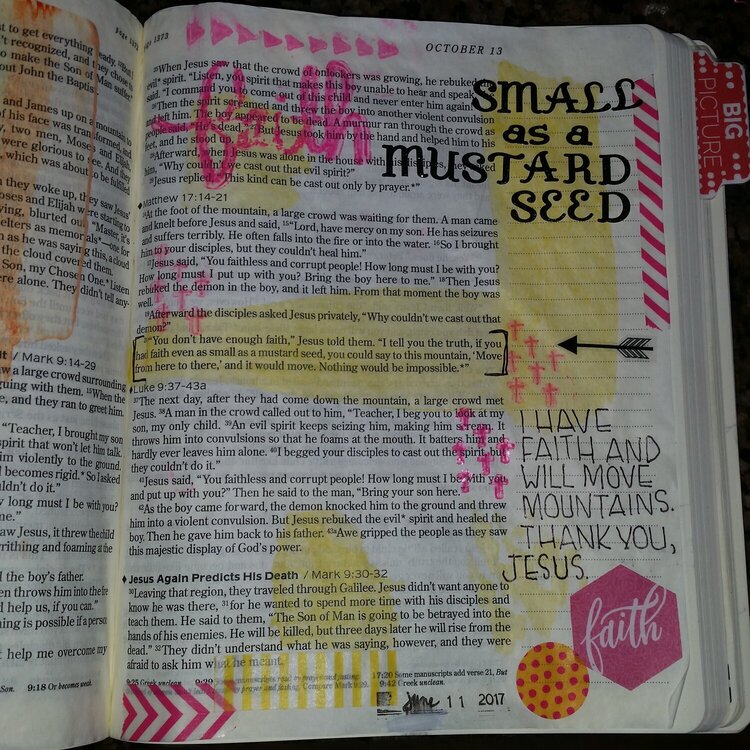 st to get everything ready
't recognized, and they chose to
to make the Son of Man suffer."
out John the Baptist.
and James up on a mountain to
of his face was transformed, and
y, two men, Moses and Elijah,
were glorious to see. And they
, which was about to be fulfilled
n they woke up, they saw Jesus'
oses and Elijah were starting to
ving, blurted out, "Master, it's
elters as memorials*—one for
n as he was saying this, a cloud
the cloud covered them.
Son, my Chosen One.* Listen
ere alone. They didn't tell any-
/ Mark 9:14-29
w a large crowd surrounding
guing with them. 15When the
e, and they ran to greet him.
"Teacher, I brought my son
spirit that won't let him talk.
im violently to the ground.
becomes rigid.* So I asked
ldn't do it."
w long must I be with you?
me."
aw Jesus, it threw the child
writhing and foaming at the
the boy's father.
en throws him into the fire
d help us, if you can."
ning is possible if a person
t help me overcome my
Son. 9:18 Or becomes weak.
1373
OCTOBER 13
25When Jesus saw that the crowd of onlookers was growing, he rebuked the
evil* spirit. "Listen, you spirit that makes this boy unable to hear and speak,"
said. "I command you to come out of this child and never enter him again!"
26Then the spirit screamed and threw the boy into another violent convulsion
left him. The boy appeared to be dead. A murmur ran through the crowd as
people said, "He's dead." 27But Jesus took him by the hand and helped him to his
feet, and he stood up.
28Afterward, when Jesus was alone in the house with his disciples, they asked
him, "Why couldn't we cast out that evil spirit?"
29Jesus replied, "This kind can be cast out only by prayer.*"
faith
SMALL
as a
MUSTARD
SEED
BIG
PICTURE
Matthew 17:14-21
14At the foot of the mountain, a large crowd was waiting for them. A man came
and knelt before Jesus and said, 15"Lord, have mercy on my son. He has seizures
and suffers terribly. He often falls into the fire or into the water. 16So I brought
him to your disciples, but they couldn't heal him."
17Jesus said, "You faithless and corrupt people! How long must I be with you?
How long must I put up with you? Bring the boy here to me." 18Then Jesus
rebuked the demon in the boy, and it left him. From that moment the boy was
well.
19Afterward the disciples asked Jesus privately, "Why couldn't we cast out that
demon?"
20"You don't have enough faith," Jesus told them. "I tell you the truth, if you
had faith even as small as a mustard seed, you could say to this mountain, 'Move
from here to there,' and it would move. Nothing would be impossible.*"
Luke 9:37-43a
37The next day, after they had come down the mountain, a large crowd met
Jesus. 38A man in the crowd called out to him, "Teacher, I beg you to look at my
son, my only child. 39An evil spirit keeps seizing him, making him scream. It
throws him into convulsions so that he foams at the mouth. It batters him and
hardly ever leaves him alone. 40I begged your disciples to cast out the spirit, but
they couldn't do it."
41Jesus said, "You faithless and corrupt people! How long must I be with you
and put up with you?" Then he said to the man, "Bring your son here."
42As the boy came forward, the demon knocked him to the ground and threw
him into a violent convulsion. But Jesus rebuked the evil* spirit and healed the
boy. Then he gave him back to his father. 43aAwe gripped the people as they saw
this majestic display of God's power.
I HAVE
FAITH AND
WILL MOVE
MOUNTAINS.
THANK YOU,
JESUS.
Jesus Again Predicts His Death / Mark 9:30-32
30Leaving that region, they traveled through Galilee. Jesus didn't want anyone to
know he was there, 31for he wanted to spend more time with his disciples and
teach them. He said to them, "The Son of Man is going to be betrayed into the
hands of his enemies. He will be killed, but three days later he will rise from the
dead." 32They didn't understand what he was saying, however, and they were
afraid to ask him what he meant.
faith
9:25 Greek unclean. 9:29 Some manuscripts read by prayer and fasting. 17:20 Some manuscripts add verse 21, But
by prayer and fasting. Compare Mark 9:29. 9:42 Greek unclean.
June 11 2017